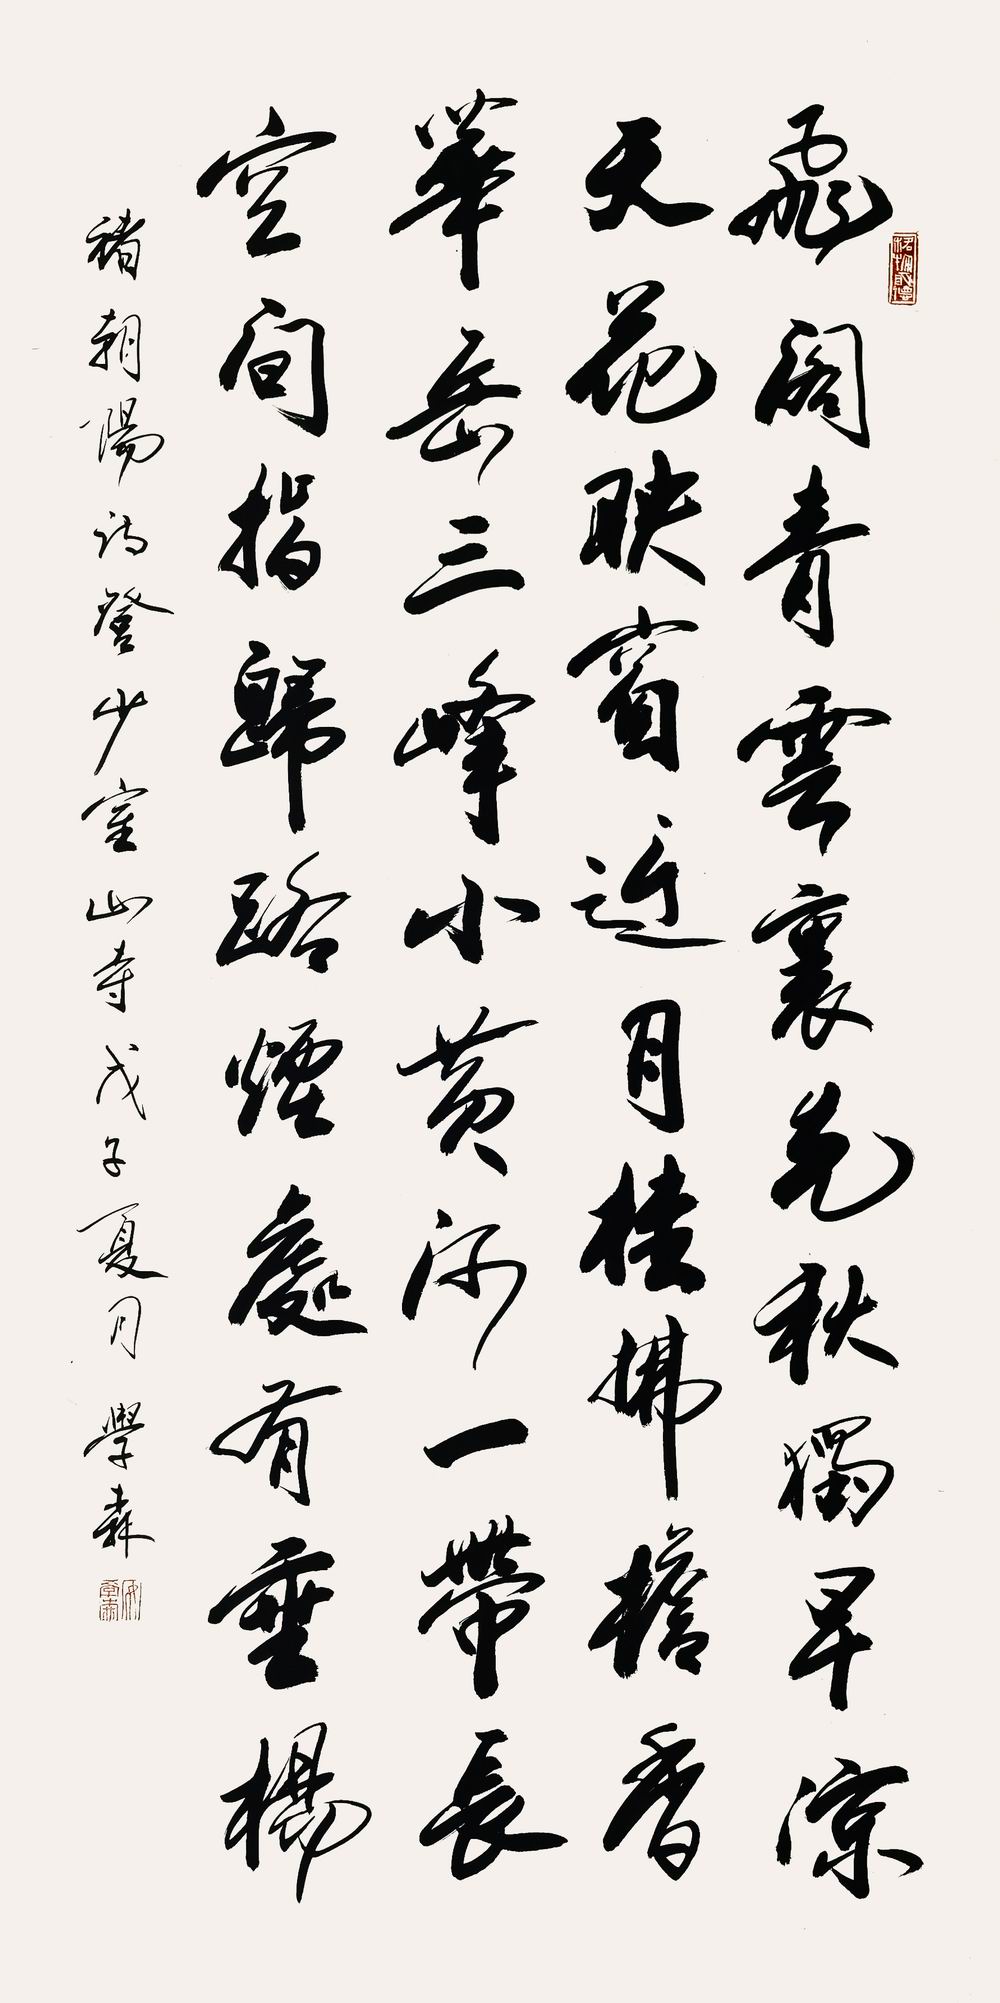 飛閣青雲裏先秋獨早涼
天花映窗近月桂拂檐香
華岳三峰小黃河一帶長
空間指歸路煙處有垂楊
褚朝陽詩登少室山寺戊子夏月學森